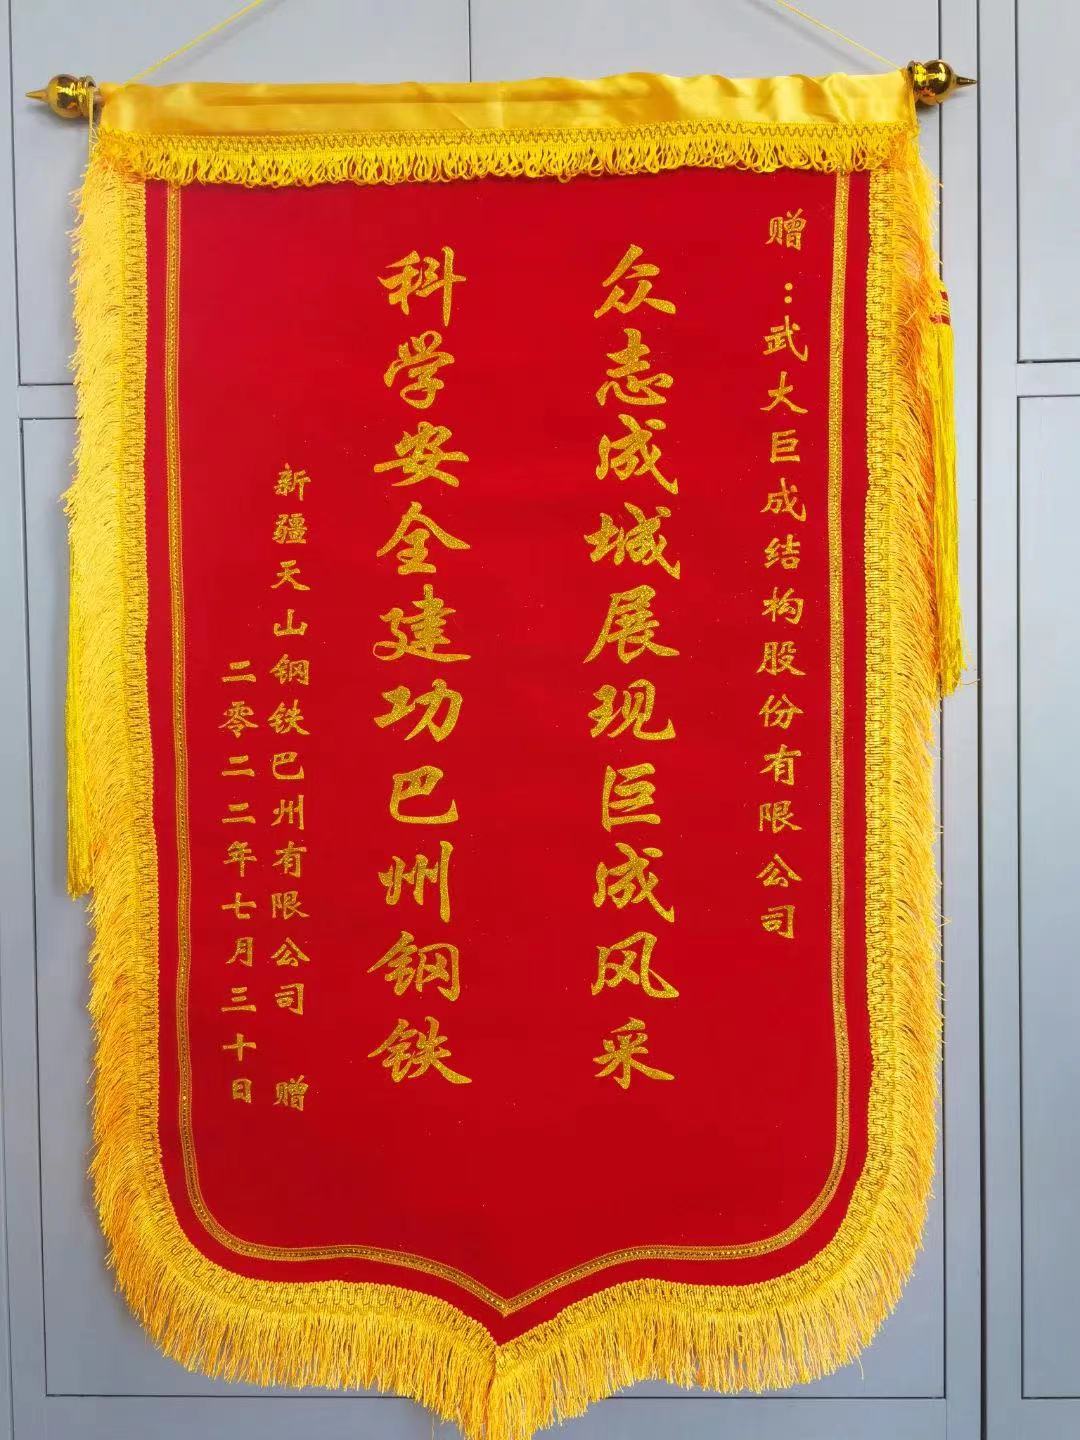 赠：武大巨成结构股份有限公司
众志成城展现巨成风采
科学安全建功巴州钢铁
新疆天山钢铁巴州有限公司 赠
二零二二年七月三十日